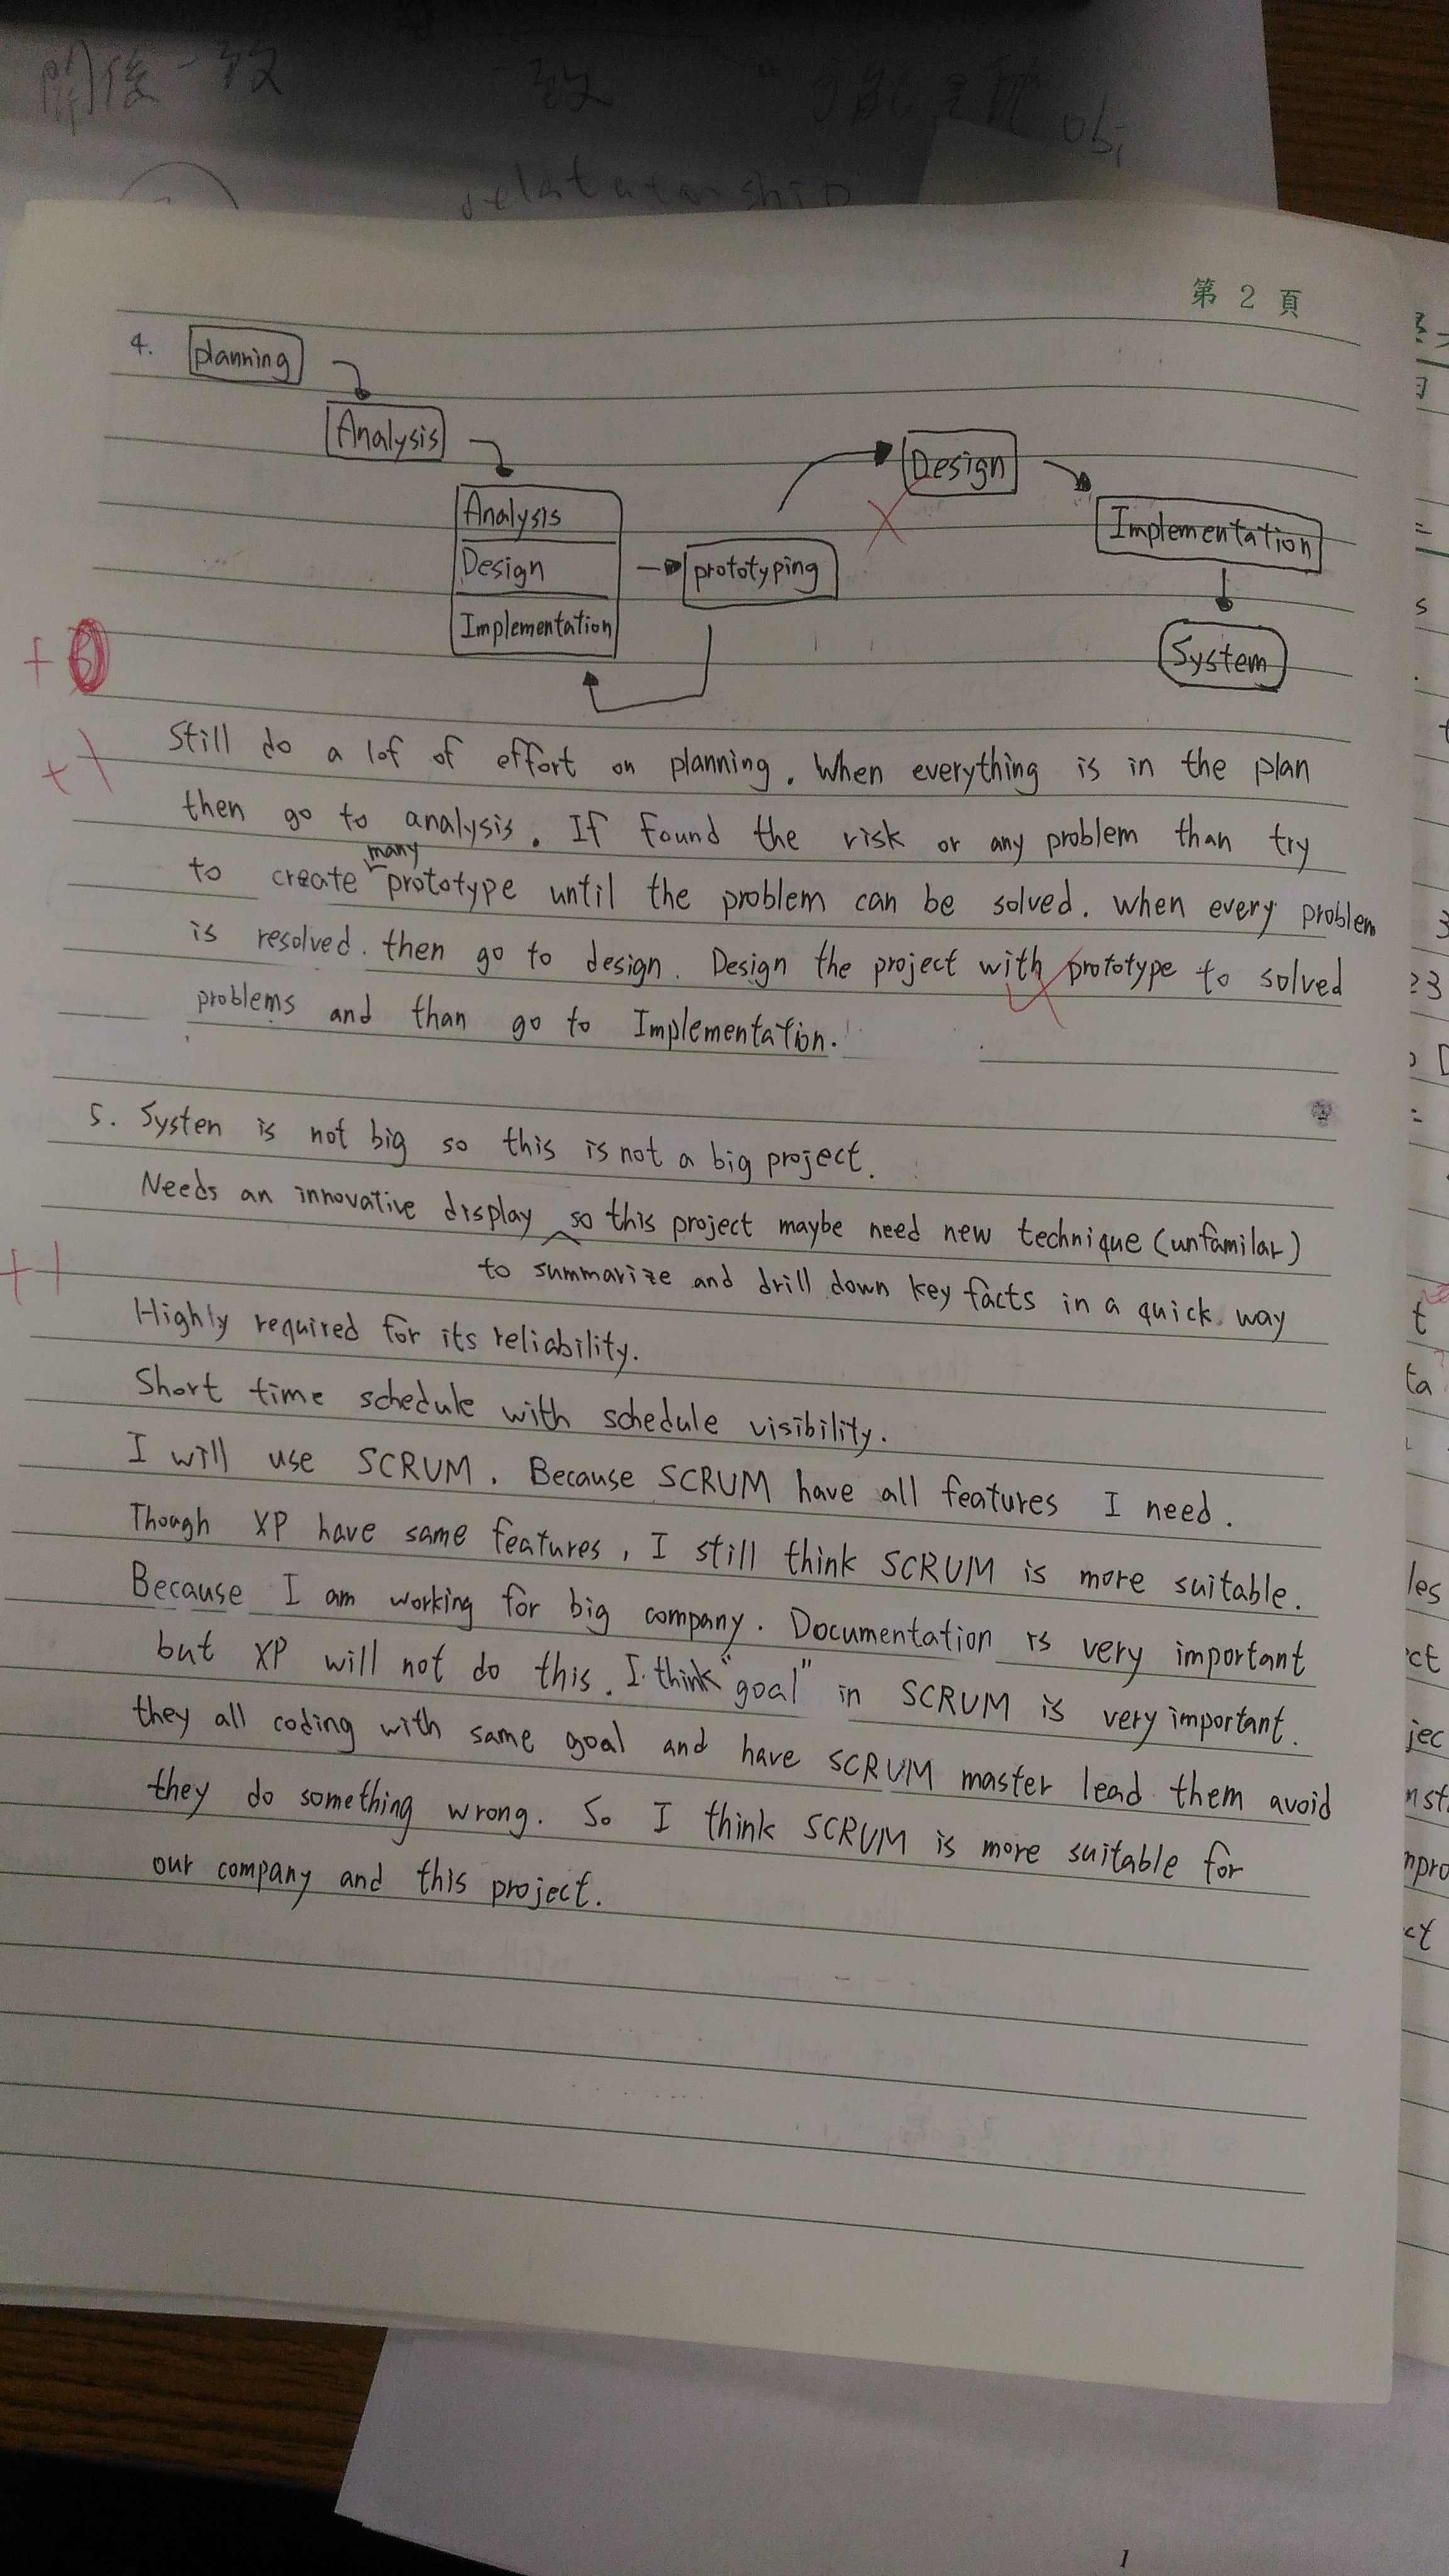 開後一致 一致
obj
relatationship
第 2 頁
4. planning
Analysis
Design
Analysis
Implementation
Design
prototyping
Implementation
System
+1
still do a lof of effort on planning. When everything is in the plan
then go to analysis. If found the risk or any problem than try
many
to create prototype until the problem can be solved. when every problem
is resolved. then go to design. Design the project with prototype to solved
problems and than go to Implementation.
5. Systen is not big so this is not a big project.
Needs an innovative display so this project maybe need new technique (unfamilar)
+1
to summarize and drill down key facts in a quick way
Highly required for its reliability.
Short time schedule with schedule visibility.
I will use SCRUM. Because SCRUM have all features I need.
Though XP have same features, I still think SCRUM is more suitable.
Because I am working for big company. Documentation is very important
but XP will not do this. I think "goal" in SCRUM is very important.
they all coding with same goal and have SCRUM master lead them avoid
they do something wrong. So I think SCRUM is more suitable for
our company and this project.
1